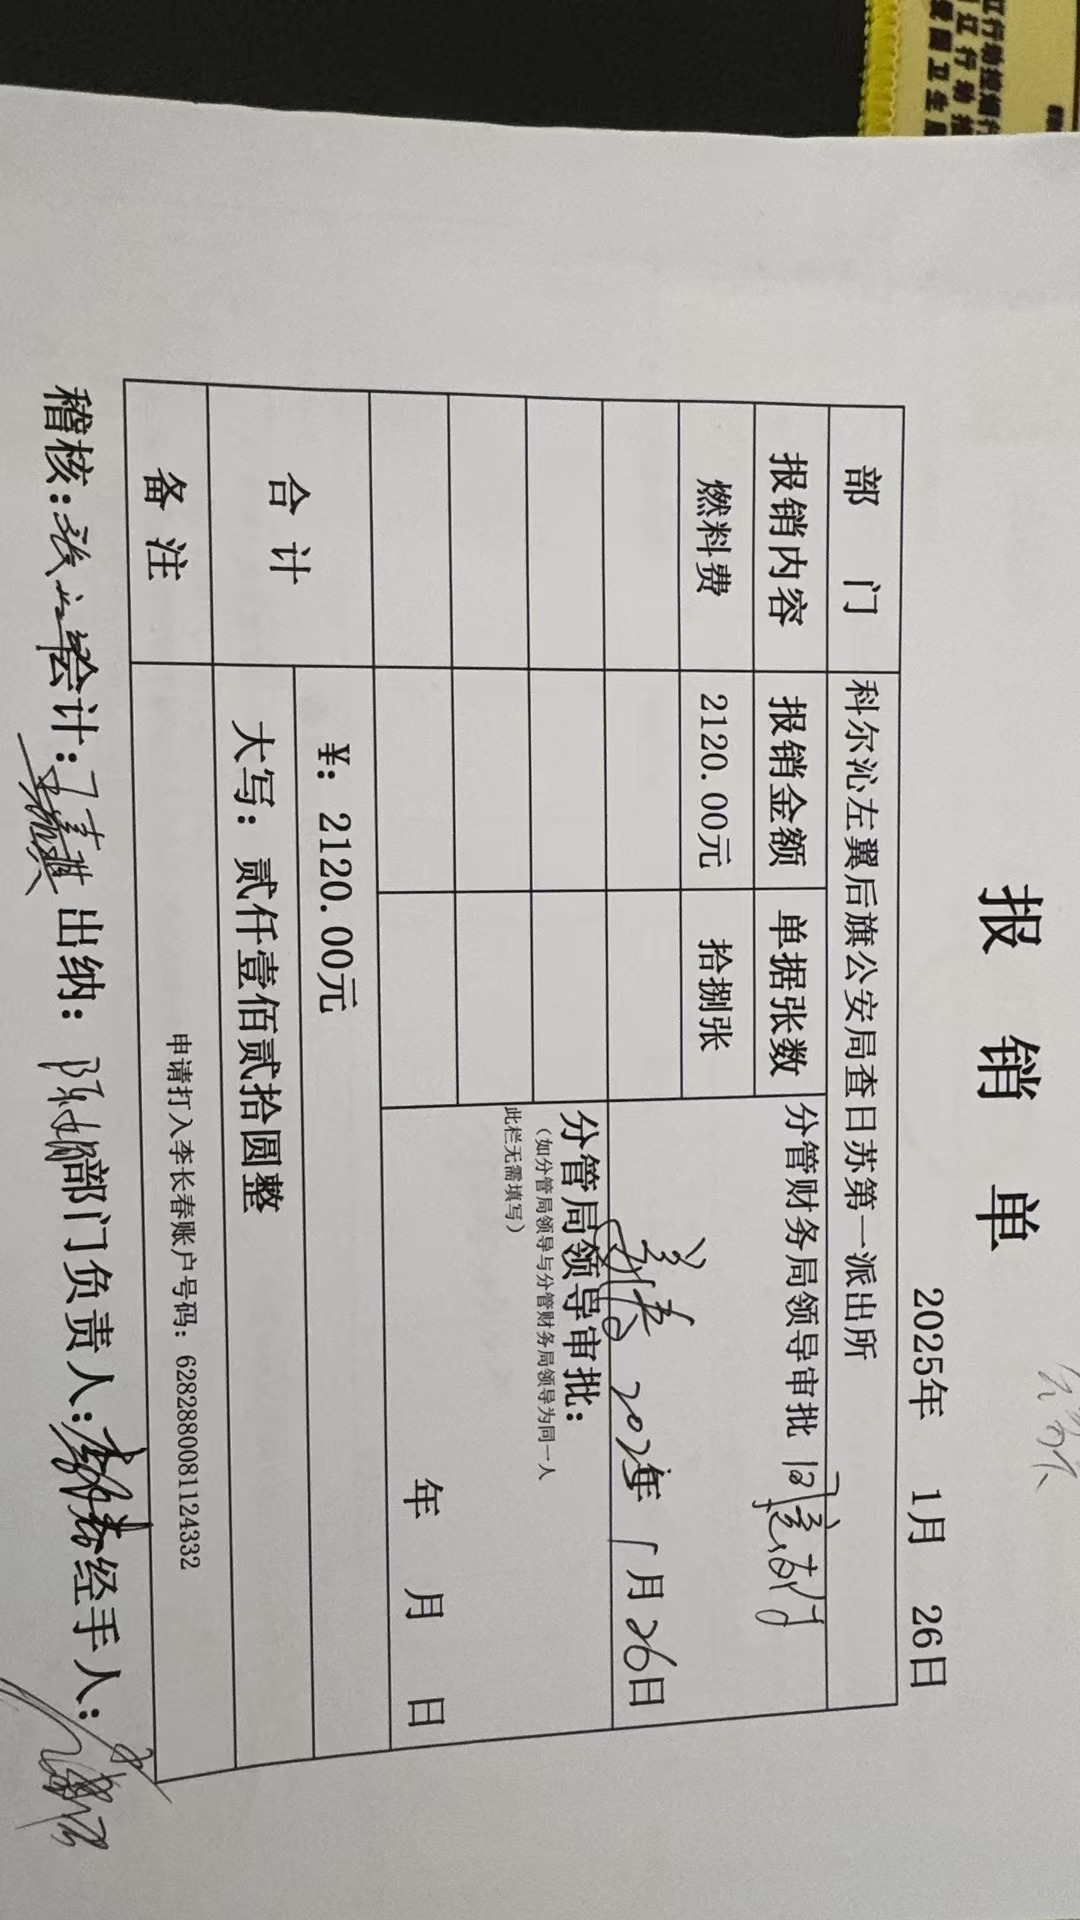 报 销 单
2025年 1月 26日
部 门 科尔沁左翼后旗公安局查日苏第一派出所
报销内容 报销金额 单据张数 分管财务局领导审批 同意报销
燃料费 2120.00元 拾捌张
2025年 1月26日
分管局领导审批：
（如分管局领导与分管财务局领导为同一人
此栏无需填写）
年 月 日
合 计 ¥：2120.00元
大写：贰仟壹佰贰拾圆整
备 注 申请打入李长春账户号码：6282880081124332
稽核： 会计： 出纳： 部门负责人：李长春 经手人：